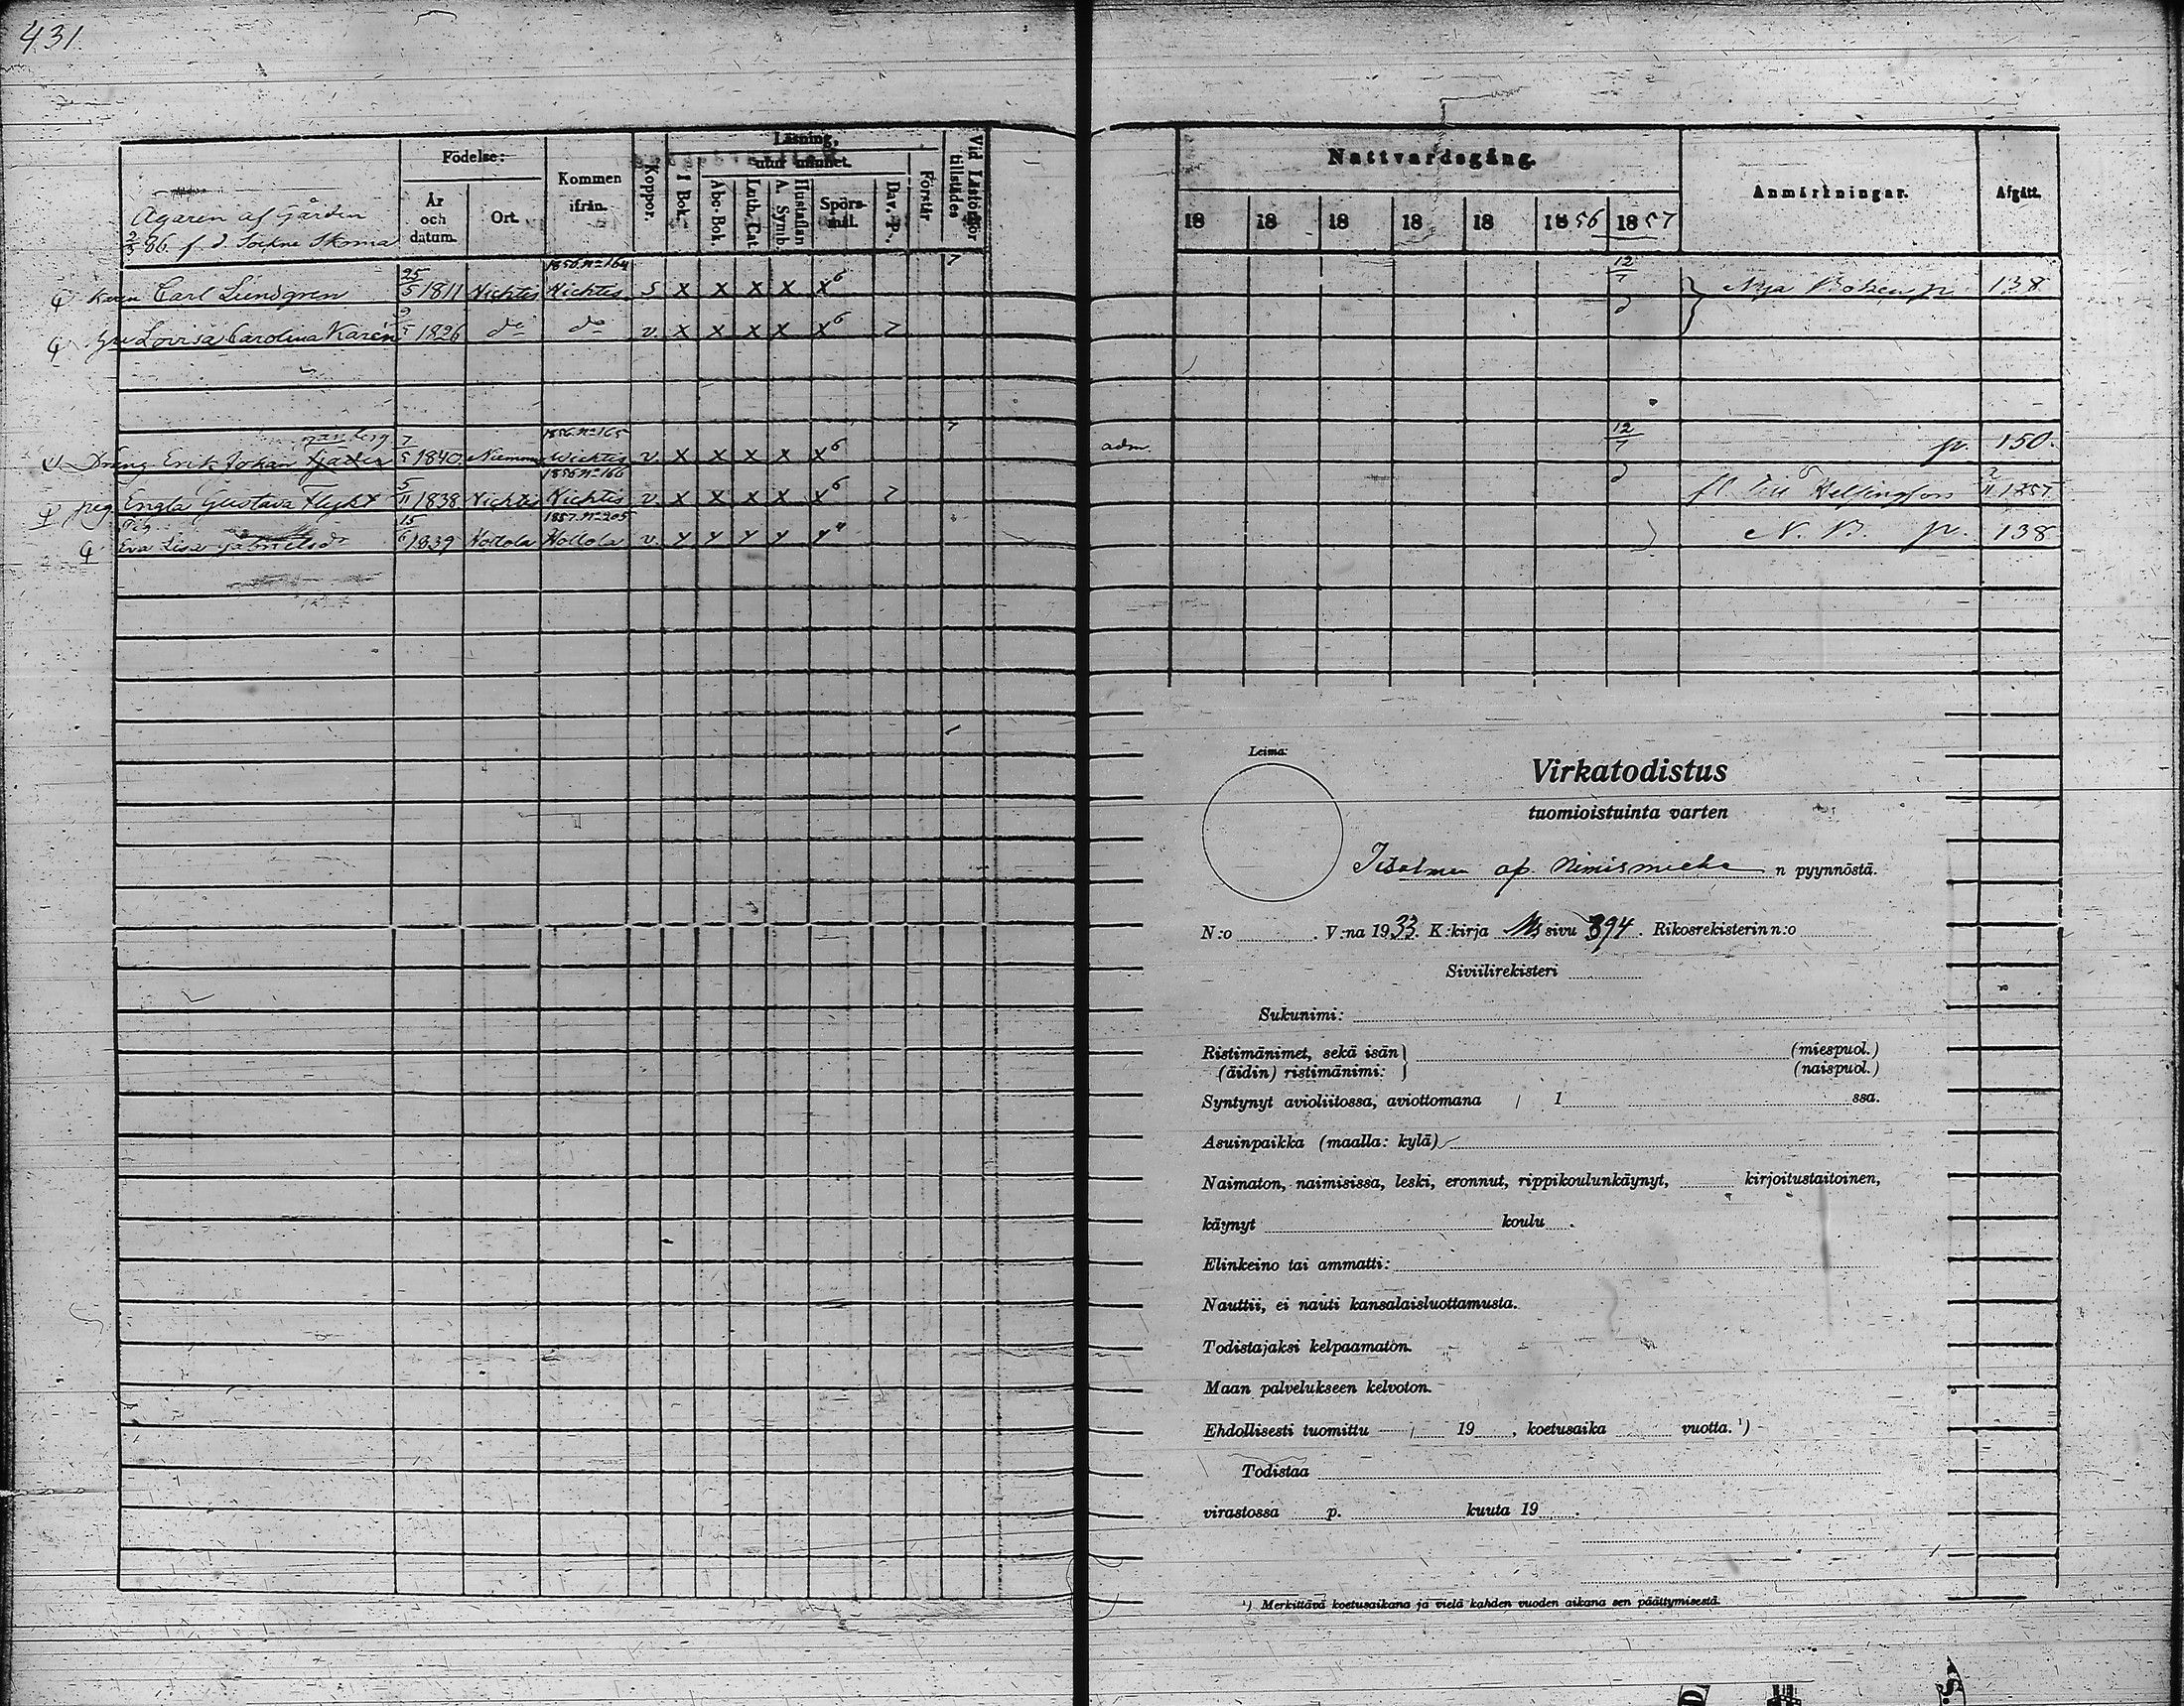 431.
Födelse:
År och datum.
Ort.
Kommen ifrån.
Koppor.
Läsning,
utur minnet.
I Bok.
Abc-Bok.
Luth. Cat.
Hustaflan A. Symb.
Spörs-mål.
Dav. P.
Förstår.
Vid Läsförhör tillstädes
Ägaren af Gården
2/3 86. f. d. Sockne Skoma
Carl Lundgren 25/5 1811 Vichtis 1856. No 164 Vichtis S x x x x x6 7
Lovisa Carolina Karén 1826 do do v. x x x x x6 7
Dräng Erik Johan 7/5 1840. 1856. No 165 Wichtis v. x x x x x6 7
pig Engla Gustava Flykt 5/11 1838 Vichtis 1856 No 166 Vichtis v. x x x x x6 7
Pig Eva Lisa Gabrielsdr 15/6 1839 Hollola 1857. No 205 Hollola v. y y y y y
Nattvardsgång.
Anmärkningar.
Afgått.
18 18 18 18 18 1856 1857
12/7 Nya Boken p. 138
adm. 12/7 p. 150.
fl. till Helsingfors 2/11 1857
N. B. p. 138
Leima:
Virkatodistus
tuomioistuinta varten
Iisalmen ap. nimismiehe n pyynnöstä.
N:o V:na 1933. K:kirja sivu 894. Rikosrekisterin n:o
Siviilirekisteri
Sukunimi:
Ristimänimet, sekä isän (miespuol.)
(äidin) ristimänimi: (naispuol.)
Syntynyt avioliitossa, aviottomana / 1 ssa.
Asuinpaikka (maalla: kylä)
Naimaton, naimisissa, leski, eronnut, rippikoulunkäynyt, kirjoitustaitoinen,
käynyt koulu .
Elinkeino tai ammatti:
Nauttii, ei nauti kansalaisluottamusta.
Todistajaksi kelpaamaton.
Maan palvelukseen kelvoton.
Ehdollisesti tuomittu / 19 , koetusaika vuotta. ¹)
Todistaa
virastossa p. kuuta 19 .
¹) Merkittävä koetusaikana ja vielä kahden vuoden aikana sen päättymisestä.